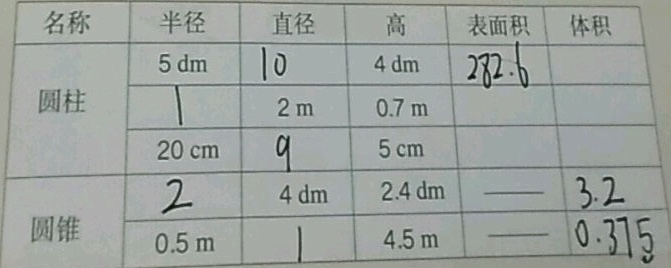 名称 半径 直径 高 表面积 体积
圆柱 5 dm 10 4 dm 282.6
1 2 m 0.7 m
20 cm 9 5 cm
圆锥 2 4 dm 2.4 dm —— 3.2
0.5 m 1 4.5 m —— 0.375